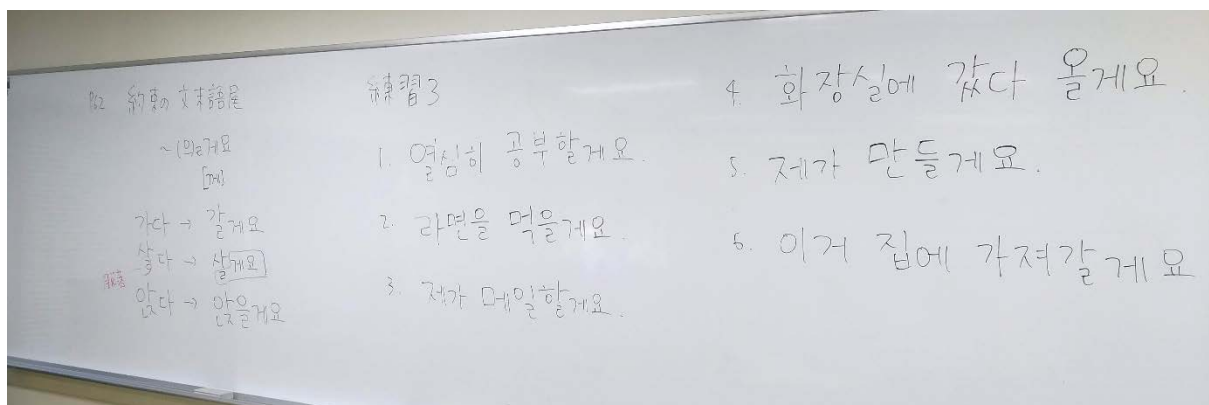 P.62 約束の文末語尾
~(으)ㄹ게요
[께]
가다 → 갈게요
살다 → 살게요
앉다 → 앉을게요
練習3
1. 열심히 공부할게요.
2. 라면을 먹을게요.
3. 제가 메일할게요.
4. 화장실에 갔다 올게요.
5. 제가 만들게요.
6. 이거 집에 가져갈게요